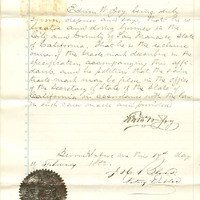 Edwin W. Joy being duly
sworn deposes and says that he re-
sides and doing business in the
City and County of San Francisco State
of California. That he is the
owner of the trade mark described in the
specification accompanying this affi-
davit and he petition that the
trade mark may be filed in the office
of the Secretary of State of the State of
California in accordance with the law
in such case made and provided
Edwin W. Joy
Sworn before me this day
of